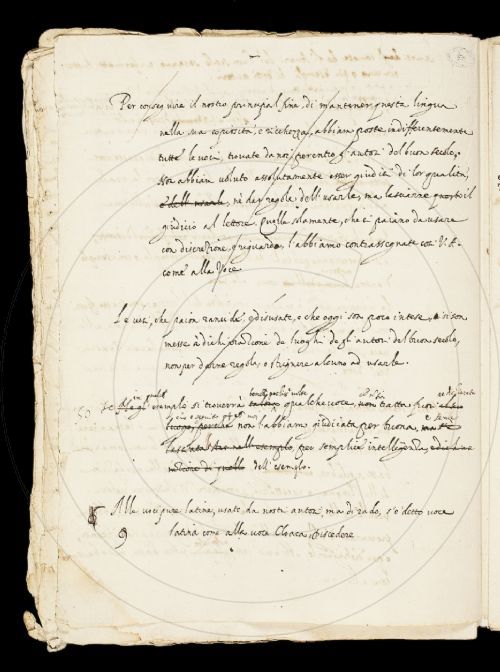 Per conseguire il nostro principal fine, di mantener questa lingua
nella sua copiosità, e ricchezza, abbiam poste indifferentemente
tutte le voci, trovate da noi per entro gl'autori del buon secolo,
Non abbiam voluto assolutamente esser giudici di lor qualità,
nè dar regola dell'usarle, ma lasciarne il
giudicio al lettore. Quelle solamente, che ci paiano da usare
con discrezione, e riguardo, l'abbiamo contrassegnate con V. A.
come alla Voce
Le voci, che paion ranci de, e disusate, e che oggi son poco intese, si son
messe à dichiarazione de luoghi degli autori del buon secolo,
non per darne regola, o strignere alcuno ad usarle.
esemplo si troverrà talora qualche voce, non tratta fuori
perche non l'abbiamo giudicata per buona,
nell'esemplo, per semplice intelligenza,
di quello dell'esemplo.
Alle voci pure latine, usate da nostri autori, ma di rado, s'è detto voce
9 latina come alla voce Cloaca, Discedere